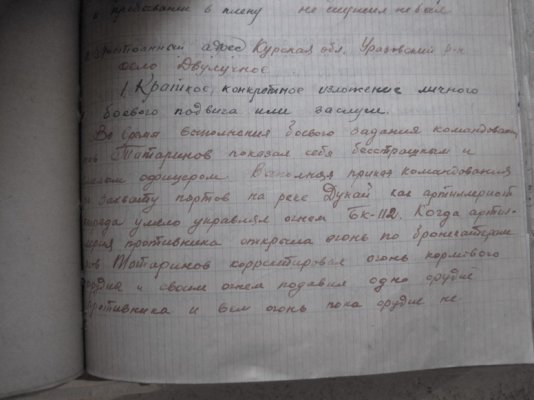 в пребывании в плену не служил не был
адрес Курская обл. Уразовский р-н
село Двулучное
1. Краткое, конкретное изложение личного
боевого подвига или заслуг.
Во время выполнения боевого задания командован
тов Татаринов показал себя бесстрашным и
смелым офицером. Выполняя приказ командования
по захвату портов на реке Дунай как артиллерист
умело управлял огнем БК-112. Когда арти-
лерия противника открыла огонь по бронекатерам
тов Татаринов корректировал огонь кормового
орудия и своим огнем подавил одно орудие
противника и вел огонь пока орудие не